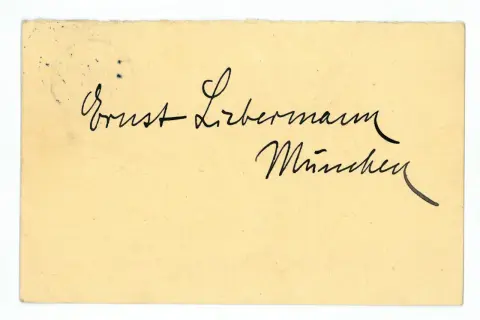 Ernst Liebermann
München